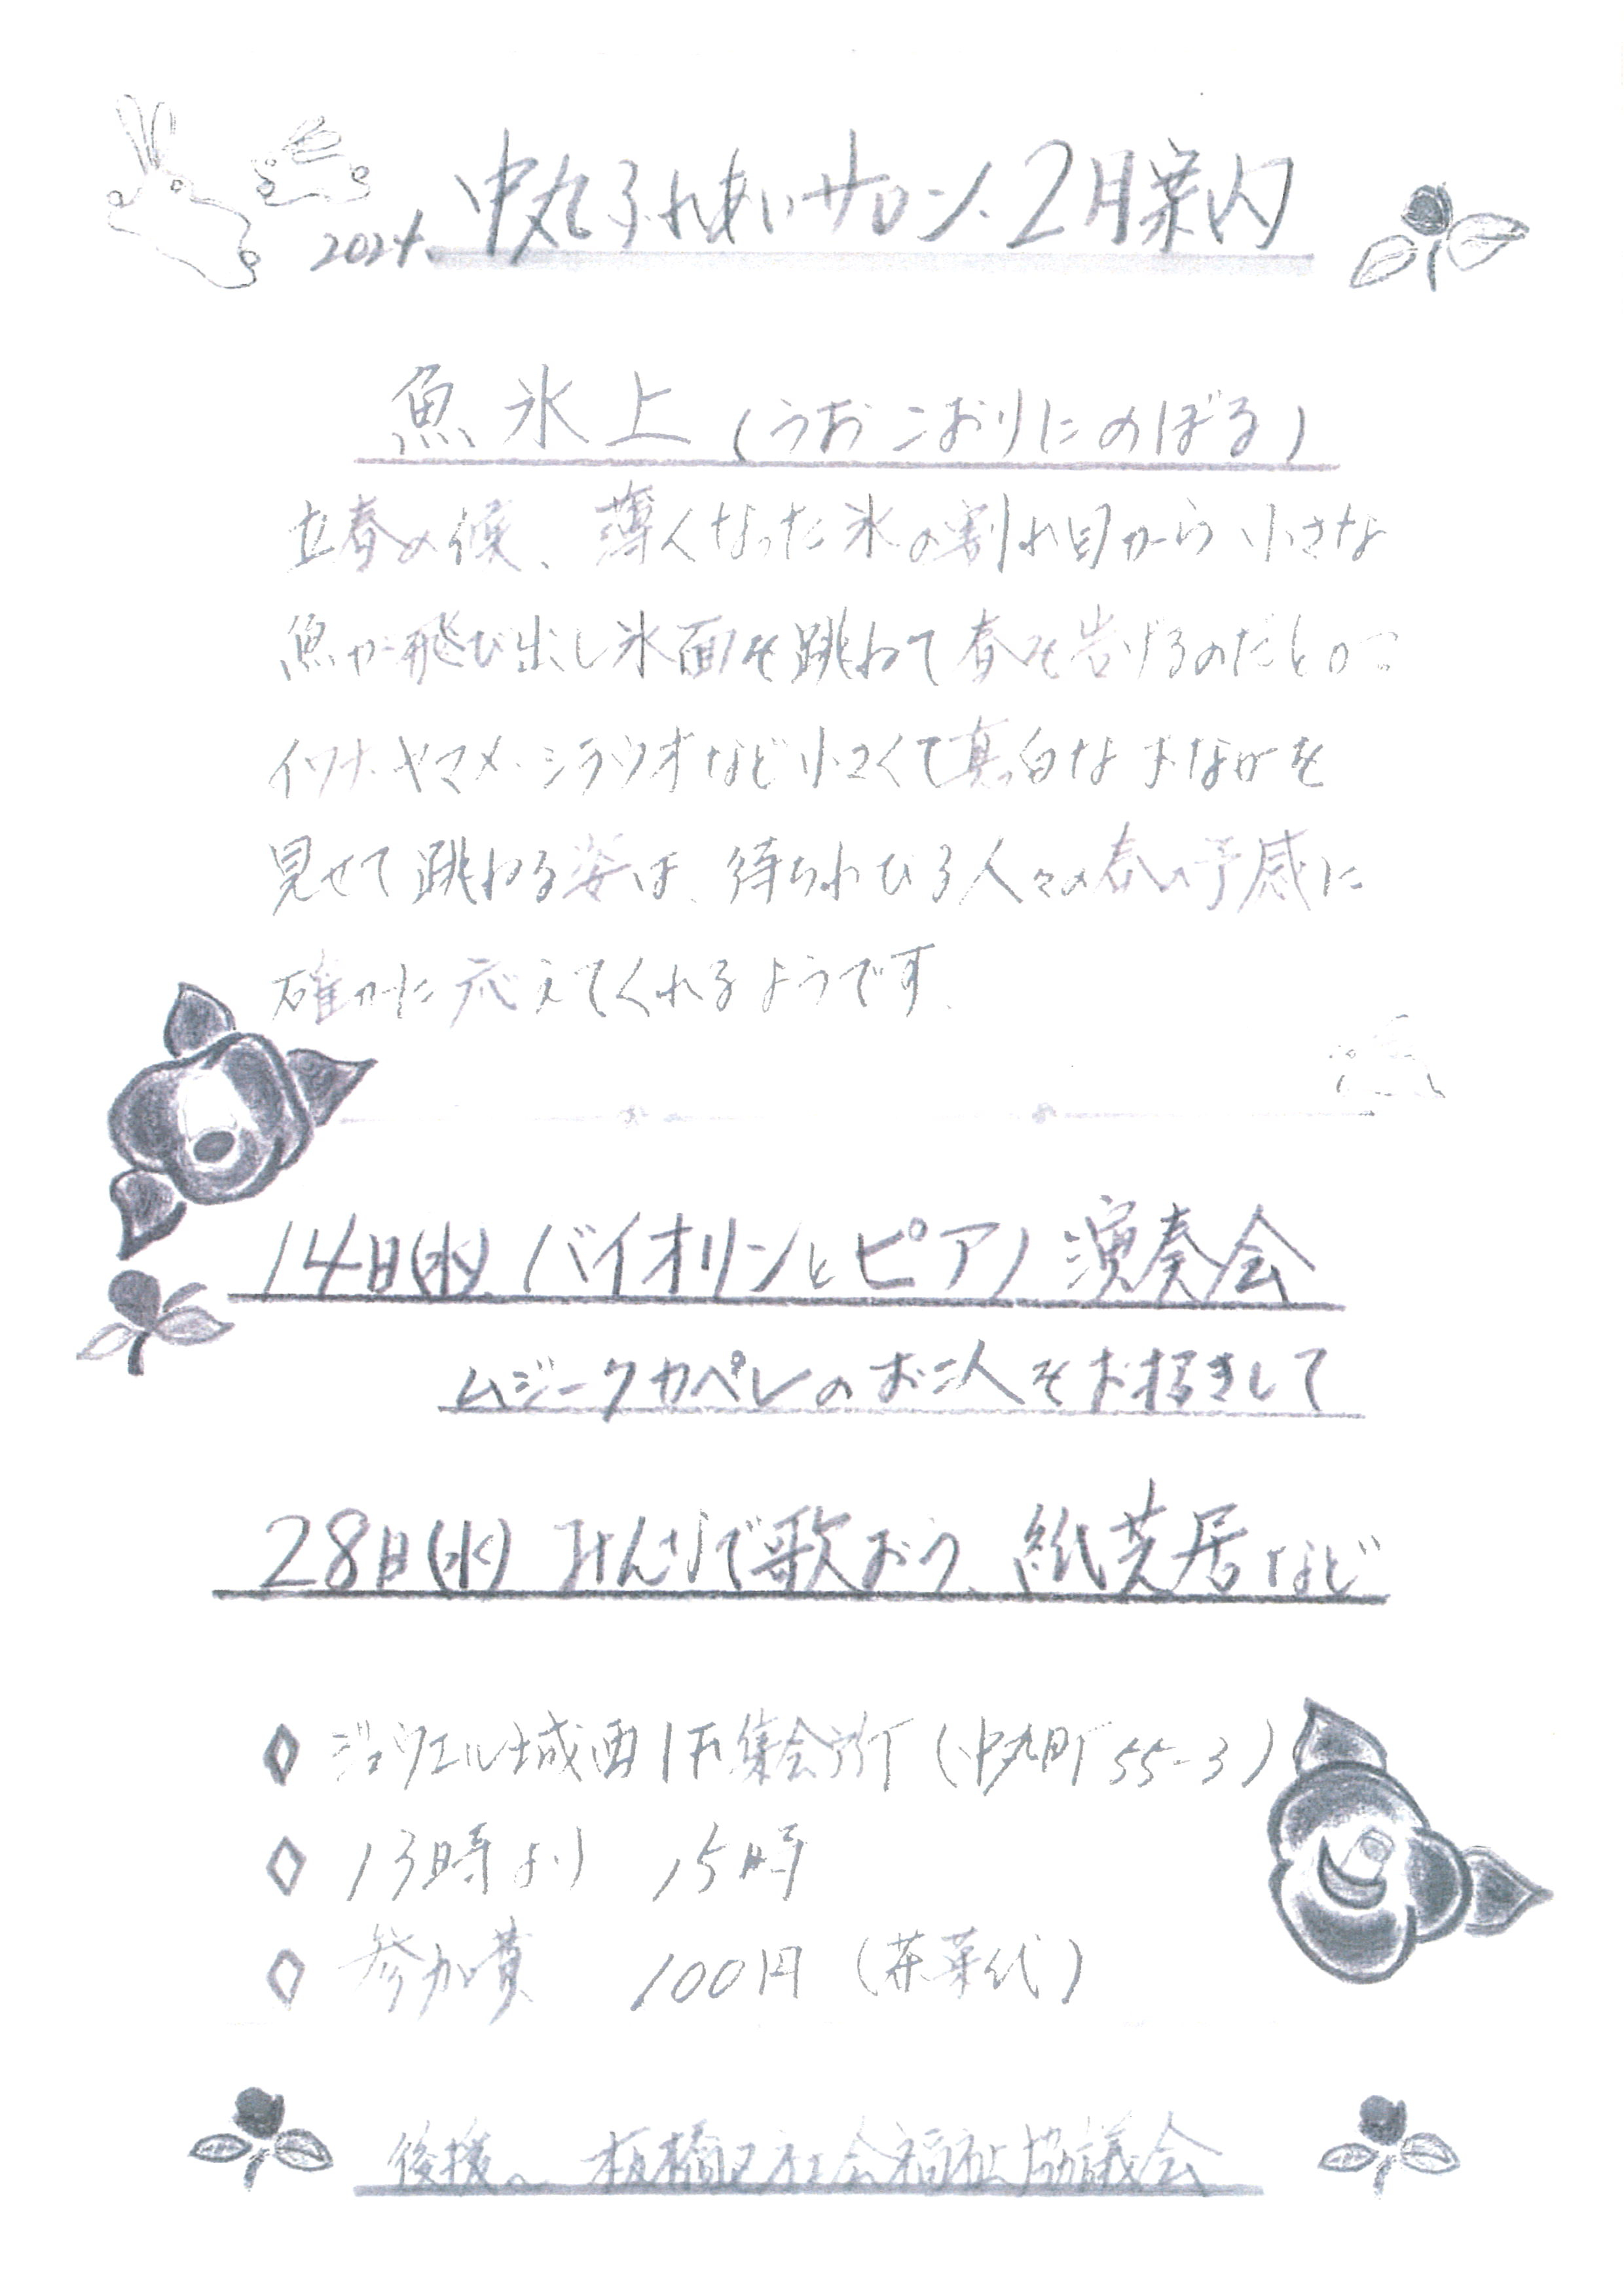 2024. 中丸ふれあいサロン. 2月案内
魚 氷 上 (うお こおりにのぼる)
立春の候、薄くなった氷の割れ目から 小さな
魚が飛び出し氷面を跳ねて春を告げるのだとか。
イワナ.ヤマメ.シラウオなど小さくて真白なおなかを
見せて跳ねる姿は、待ちわびる人々の春の予感に
確かに応えてくれるようです.
14日(水) バイオリンとピアノ 演奏会
ムジークカペレのお二人をお招きして
28日(水) みんなで歌おう、紙芝居など
◇ ジュウエル城西1F集会所 (中丸町55-3)
◇ 13時より 15時
◇ 参加費 100円 (茶菓代)
後援. 板橋区社会福祉協議会